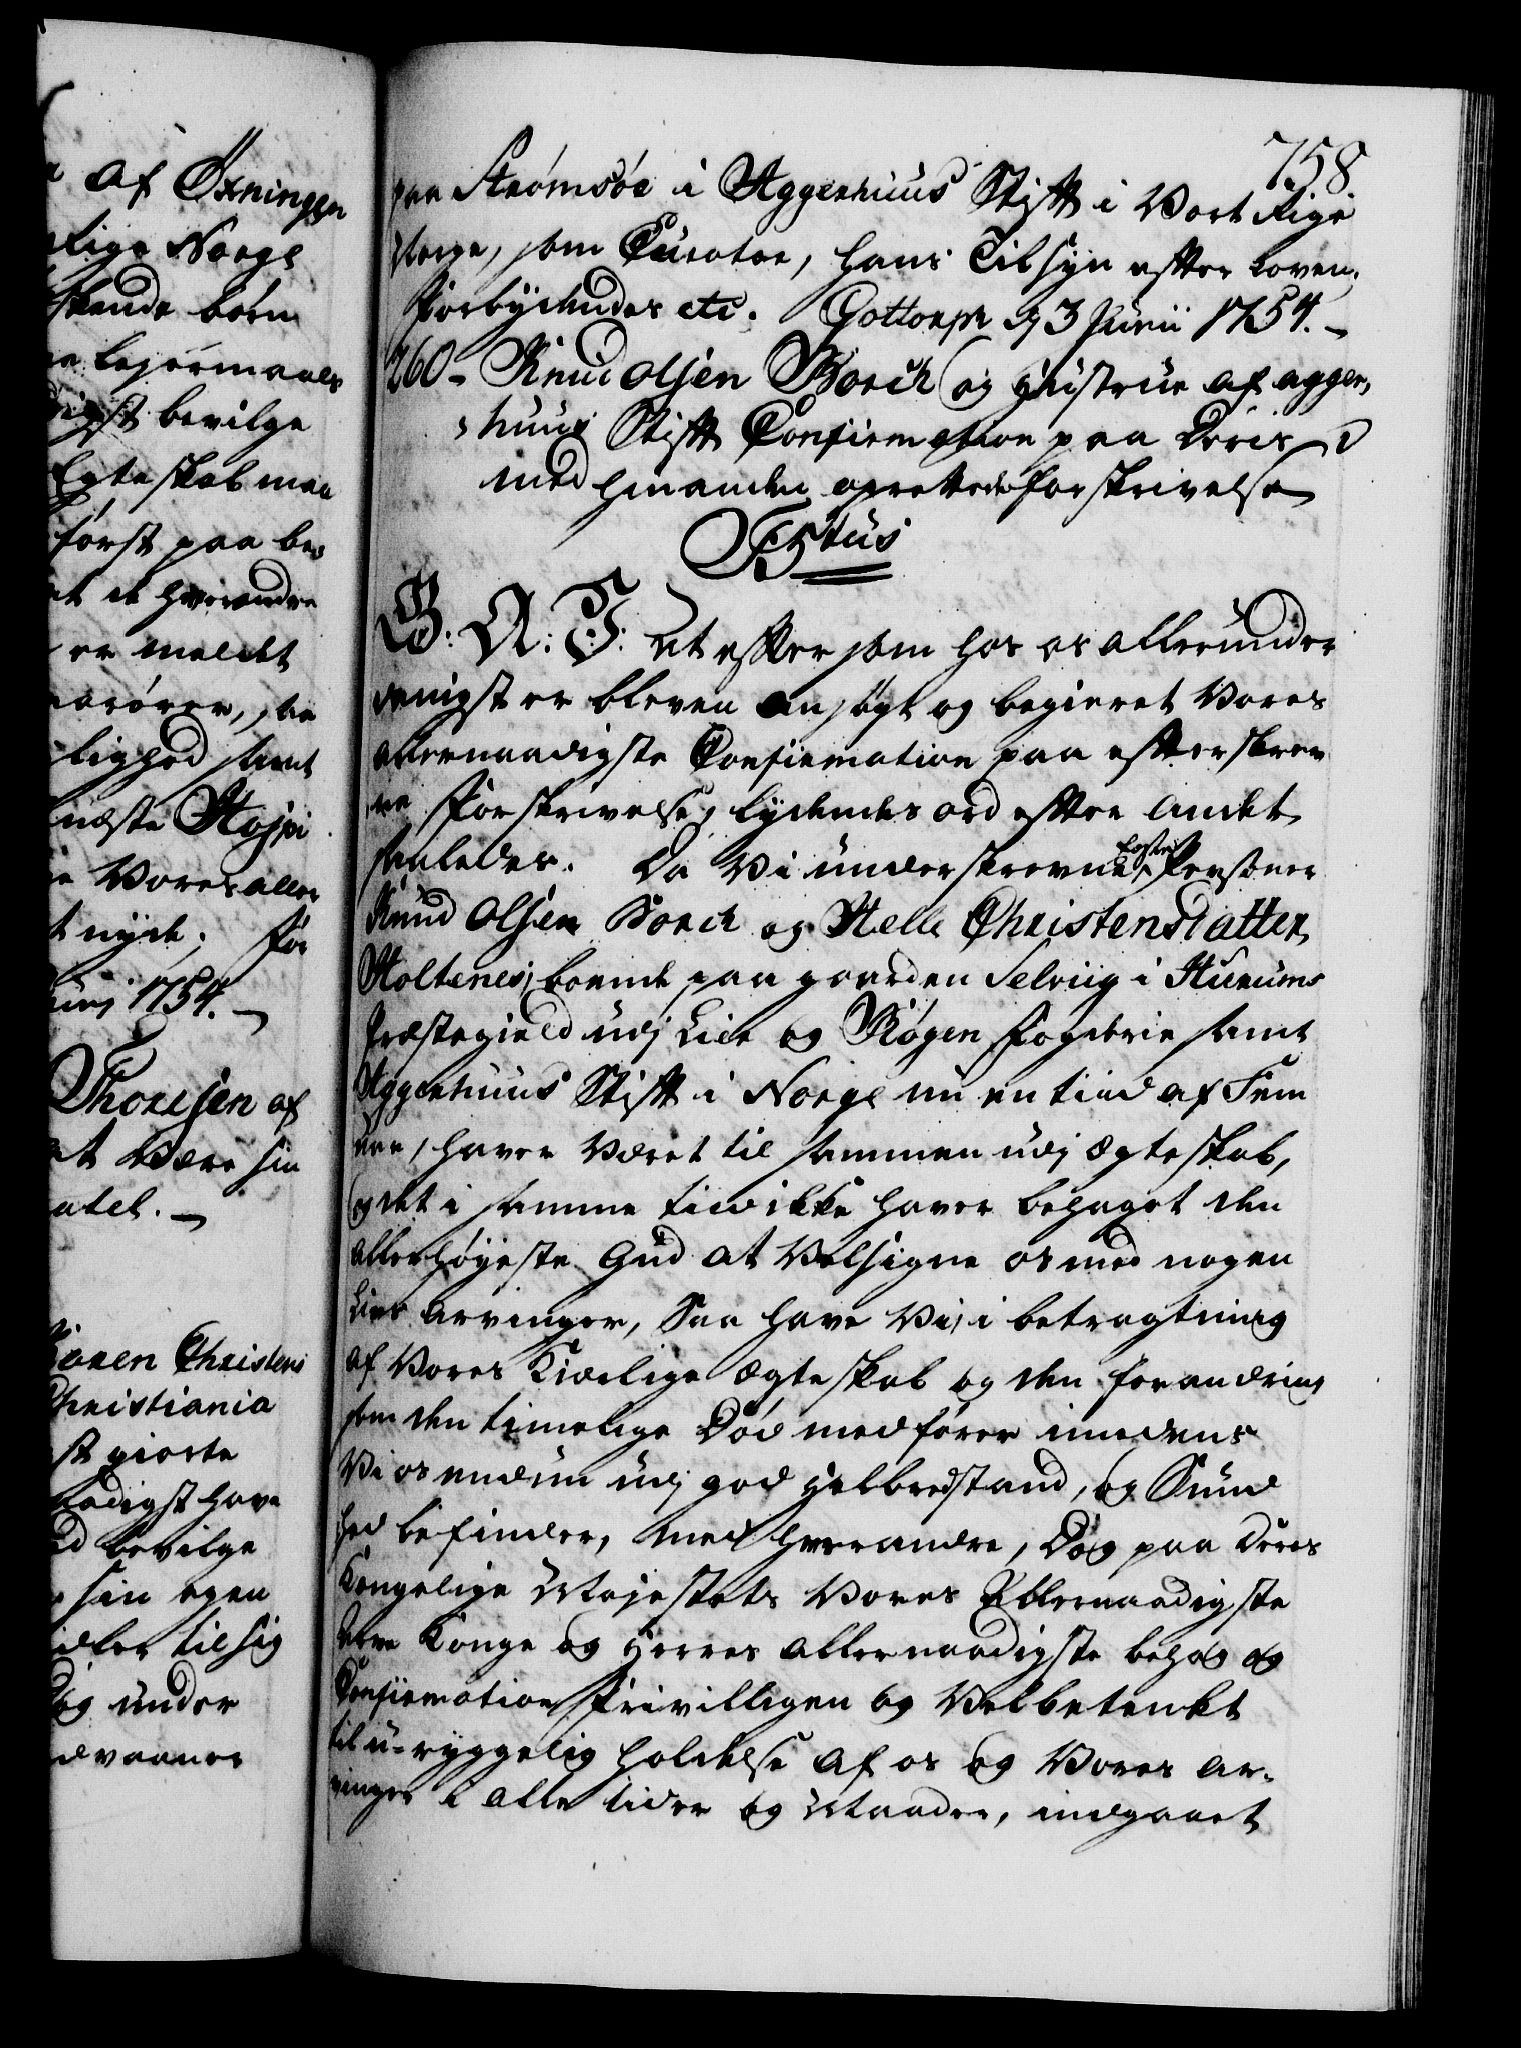 af Øxningen
Rige Norge
børn
lejermaals
bevilge
Egteskab maa
først paa be,
at de hverandre
er meldt
lighed samt
næste Slegt
Vores aller
t nyde; for
Junj 1754.
Thoresen af
at være sin
Søren Christens
Christiania
st giorte
naadigst have
bevilge
sin egen
til sig
og under
758.
paa Strømsøe i Aggerhuus Stift i Vort Rige
Norge, som Curator, hans Tilsyn efter Loven.
Forbydendes etc. Gottorph d 3 Junii 1754.
260- Knud Olsen Borch og Hustrue af Agger,
,huus Stift Confirmation paa Deris
med hinanden oprettede forskrivelse
G: A: T: at eftersom hos os allerunder
danigst er bleven ansøgt og begieret Vores
allernaadigste Confirmation paa efterskrev
ne Forskrivelse, lydendes ord efter andet
saaledes. Da Vi underskrevne Persohner
Knud Olsen Borch og Helle Christensdatter
Holtenes, boende paa gaarden Selvig i Hurums
Præstegield udj Lier og Røgen Fogderie samt
Aggerhuus Stift i Norge nu en tiid af Fem
aar, haver Været til sammen udj Ægteskab,
og det i samme tiid ikke haver behaget den
allerhøyeste Gud at Velsigne os med nogen
Livs Arvinger, Saa have Vi, i betragtning
af Vores Kierlige Ægteskab og den forandring
som den timelige Død medfører imedens
Vi os endnu udj god Helbredstand, og Sund
hed befinder, med hverandre, Dog paa Deres
Kongelige Majestets Vores Allernaadigste
Arve Konge og Herres allernaadigste behag og
Confirmation Frivilligen og Velbetenkt
til u-ryggelig holdelse af os og Vores Ar-
vinger i alle tider og Maader, indgaaet